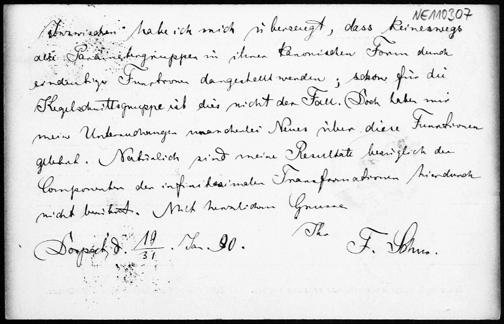 NE110307
Inzwischen habe ich mich überzeugt, dass keineswegs
alle Parametergruppen in ihrer kanonischen Form durch
eindeutige Functionen dargestellt werden; schon für die
Kegelschnittsgruppe ist dies nicht der Fall. Doch haben mir
meine Untersuchungen mancherlei Neues über diese Functionen
gelehrt. Natürlich sind meine Resultate bezüglich der
Componenten der infinitesimalen Transformationen hierdurch
nicht berührt. Mit herzlichem Grusse
Ihr
Dorpat, d. 19/31 Jan. 90. F. Schur.